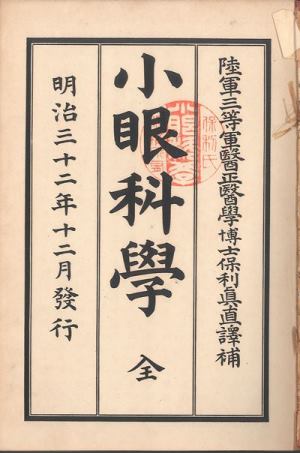 陸軍三等軍醫正醫學博士保利眞直譯補
小眼科學 全
明治三十二年十二月發行